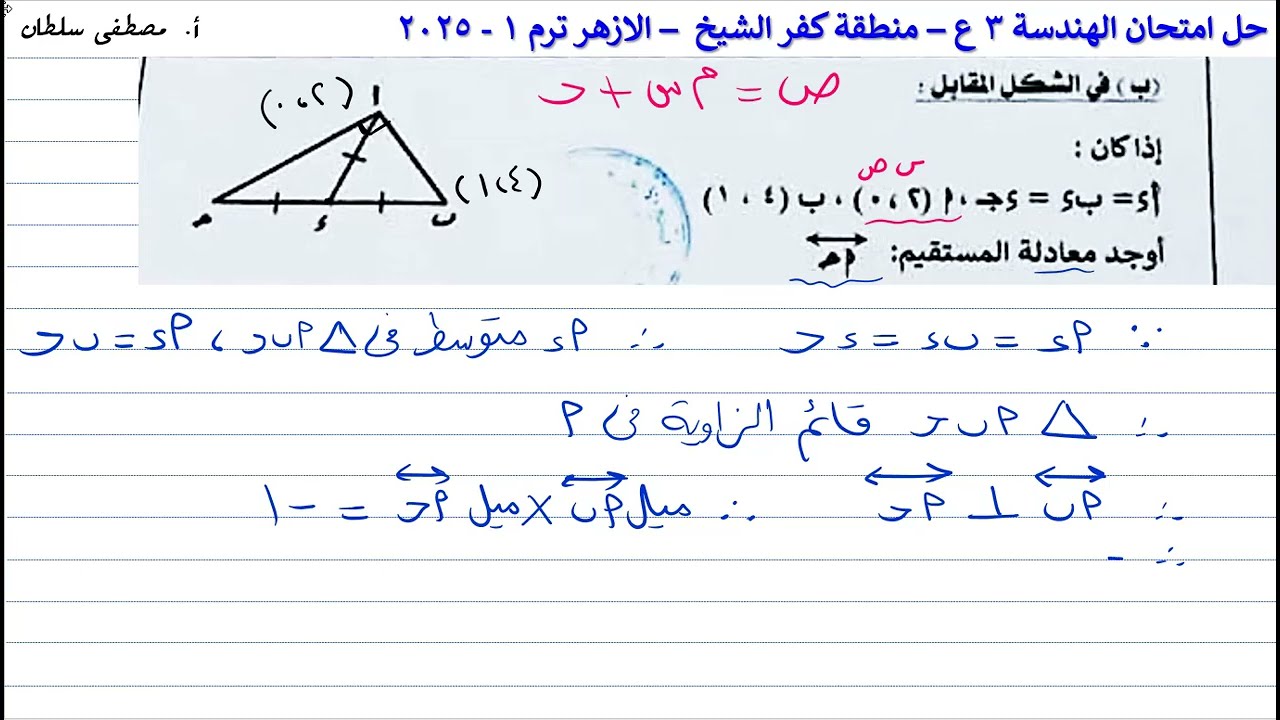 حل امتحان الهندسة ٣ ع – منطقة كفر الشيخ – الازهر ترم ١ - ٢٠٢٥
أ. مصطفى سلطان
(ب) في الشكل المقابل :
ص = م س + حـ
إذا كان :
س ص
أء = بء = ءجـ ، أ (٢ ، ٠) ، ب (٤ ، ١)
أوجد معادلة المستقيم: أحـ
أ (٢ ، ٠)
(٤ ، ١)
حـ ء ب
∵ أء = بء = ء حـ ∴ أء متوسط فى △ أ ب حـ ، أء = ب حـ
∴ △ أ ب حـ قائم الزاوية فى أ
∴ أب ⊥ أحـ ∴ ميل أب × ميل أحـ = -١
∴ -